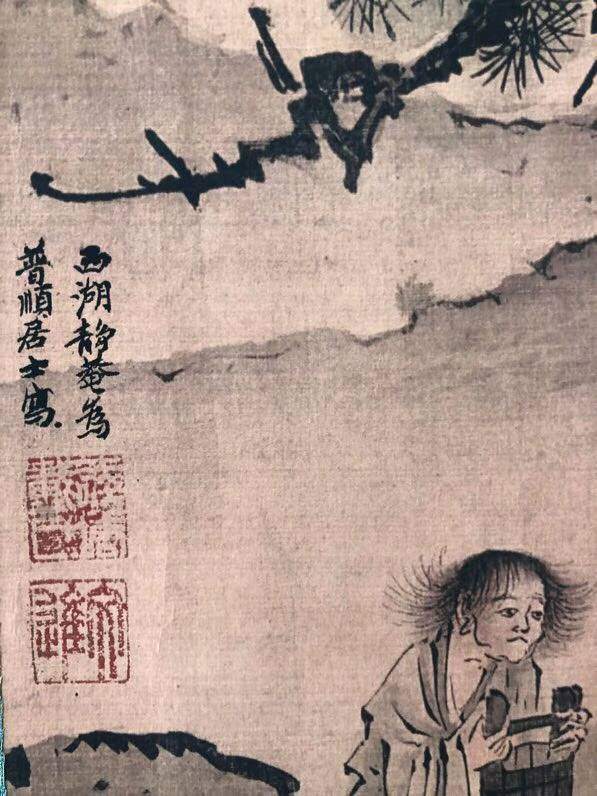 西湖静菴為
普順居士寫
文進